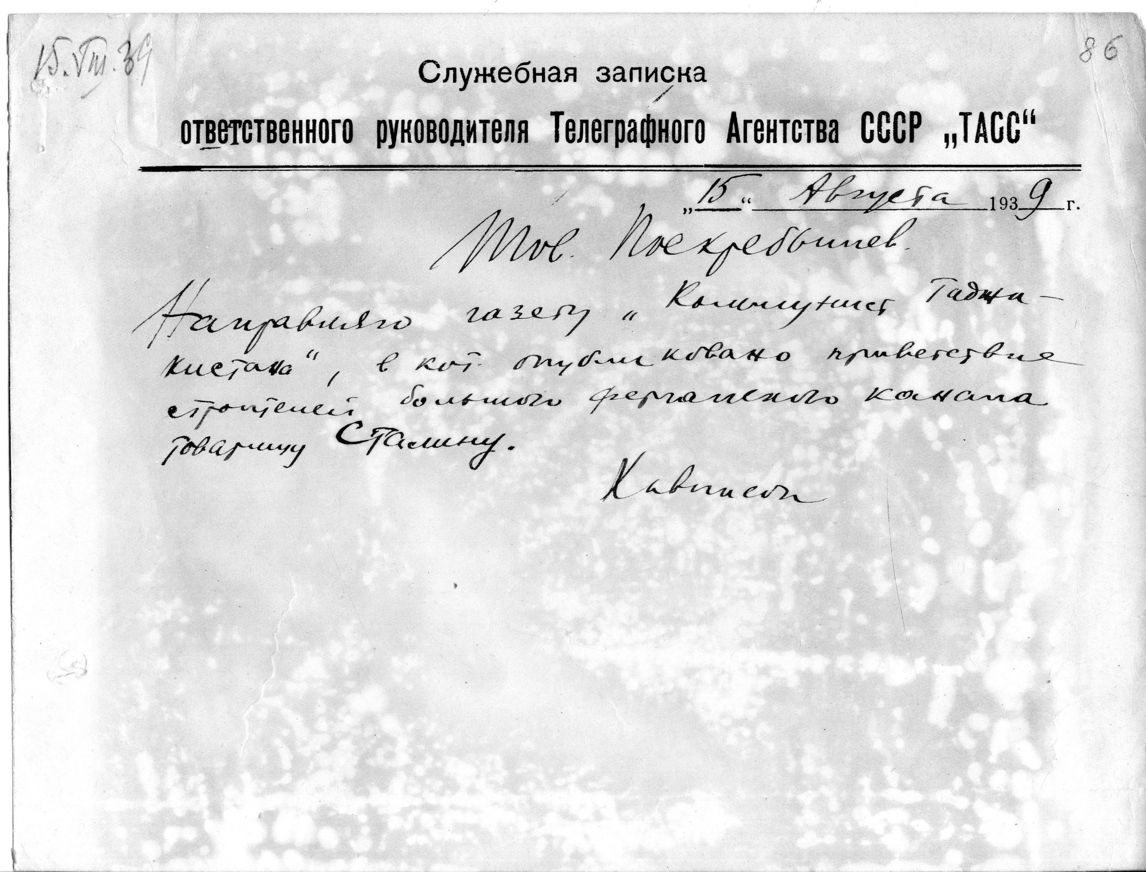 15.VIII.39
86
Служебная записка
ответственного руководителя Телеграфного Агентства СССР „ТАСС“
„15“ Августа 1939 г.
Тов. Поскребышев.
Направляю газету „Коммунист Таджи-
кистана“, в кот. опубликовано приветствие
строителей большого ферганского канала
товарищу Сталину.
Хавинсон